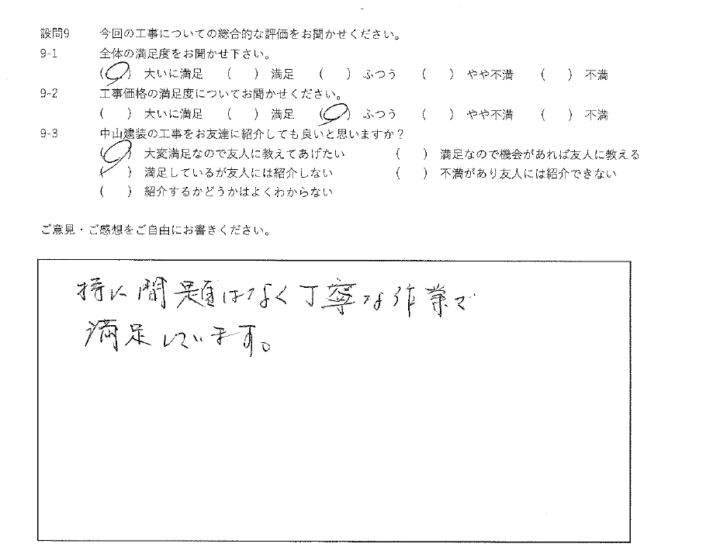 設問9 今回の工事についての総合的な評価をお聞かせください。
9-1 全体の満足度をお聞かせ下さい。
(○) 大いに満足 ( ) 満足 ( ) ふつう ( ) やや不満 ( ) 不満
9-2 工事価格の満足度についてお聞かせください。
( ) 大いに満足 ( ) 満足 (○) ふつう ( ) やや不満 ( ) 不満
9-3 中山建装の工事をお友達に紹介しても良いと思いますか？
(○) 大変満足なので友人に教えてあげたい ( ) 満足なので機会があれば友人に教える
( ) 満足しているが友人には紹介しない ( ) 不満があり友人には紹介できない
( ) 紹介するかどうかはよくわからない
ご意見・ご感想をご自由にお書きください。
特に問題はなく丁寧な作業で
満足しています。